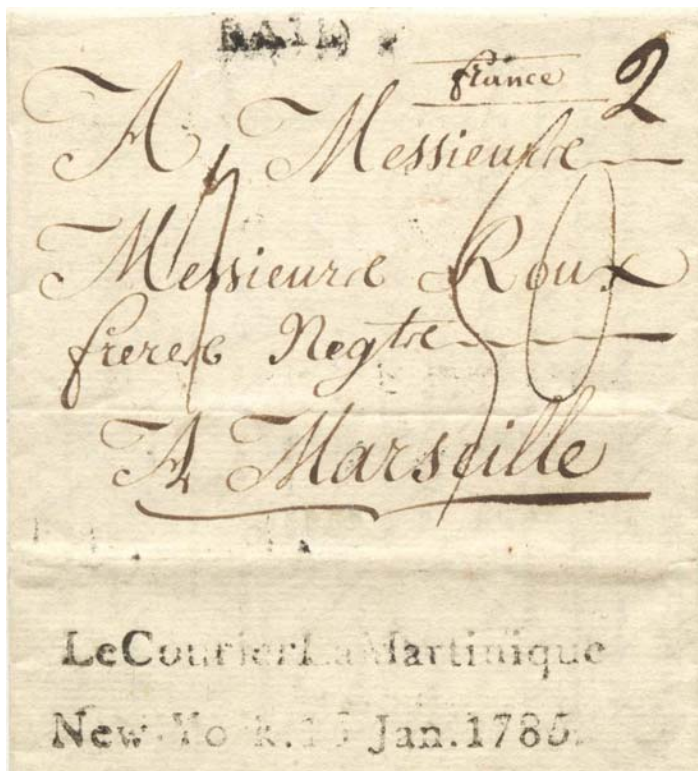 PAID
france 2
A Messieurs
Messieurs Roux
freres Negts
A Marseille
Le Courier La Martinique
New-York. 15 Jan. 1785.